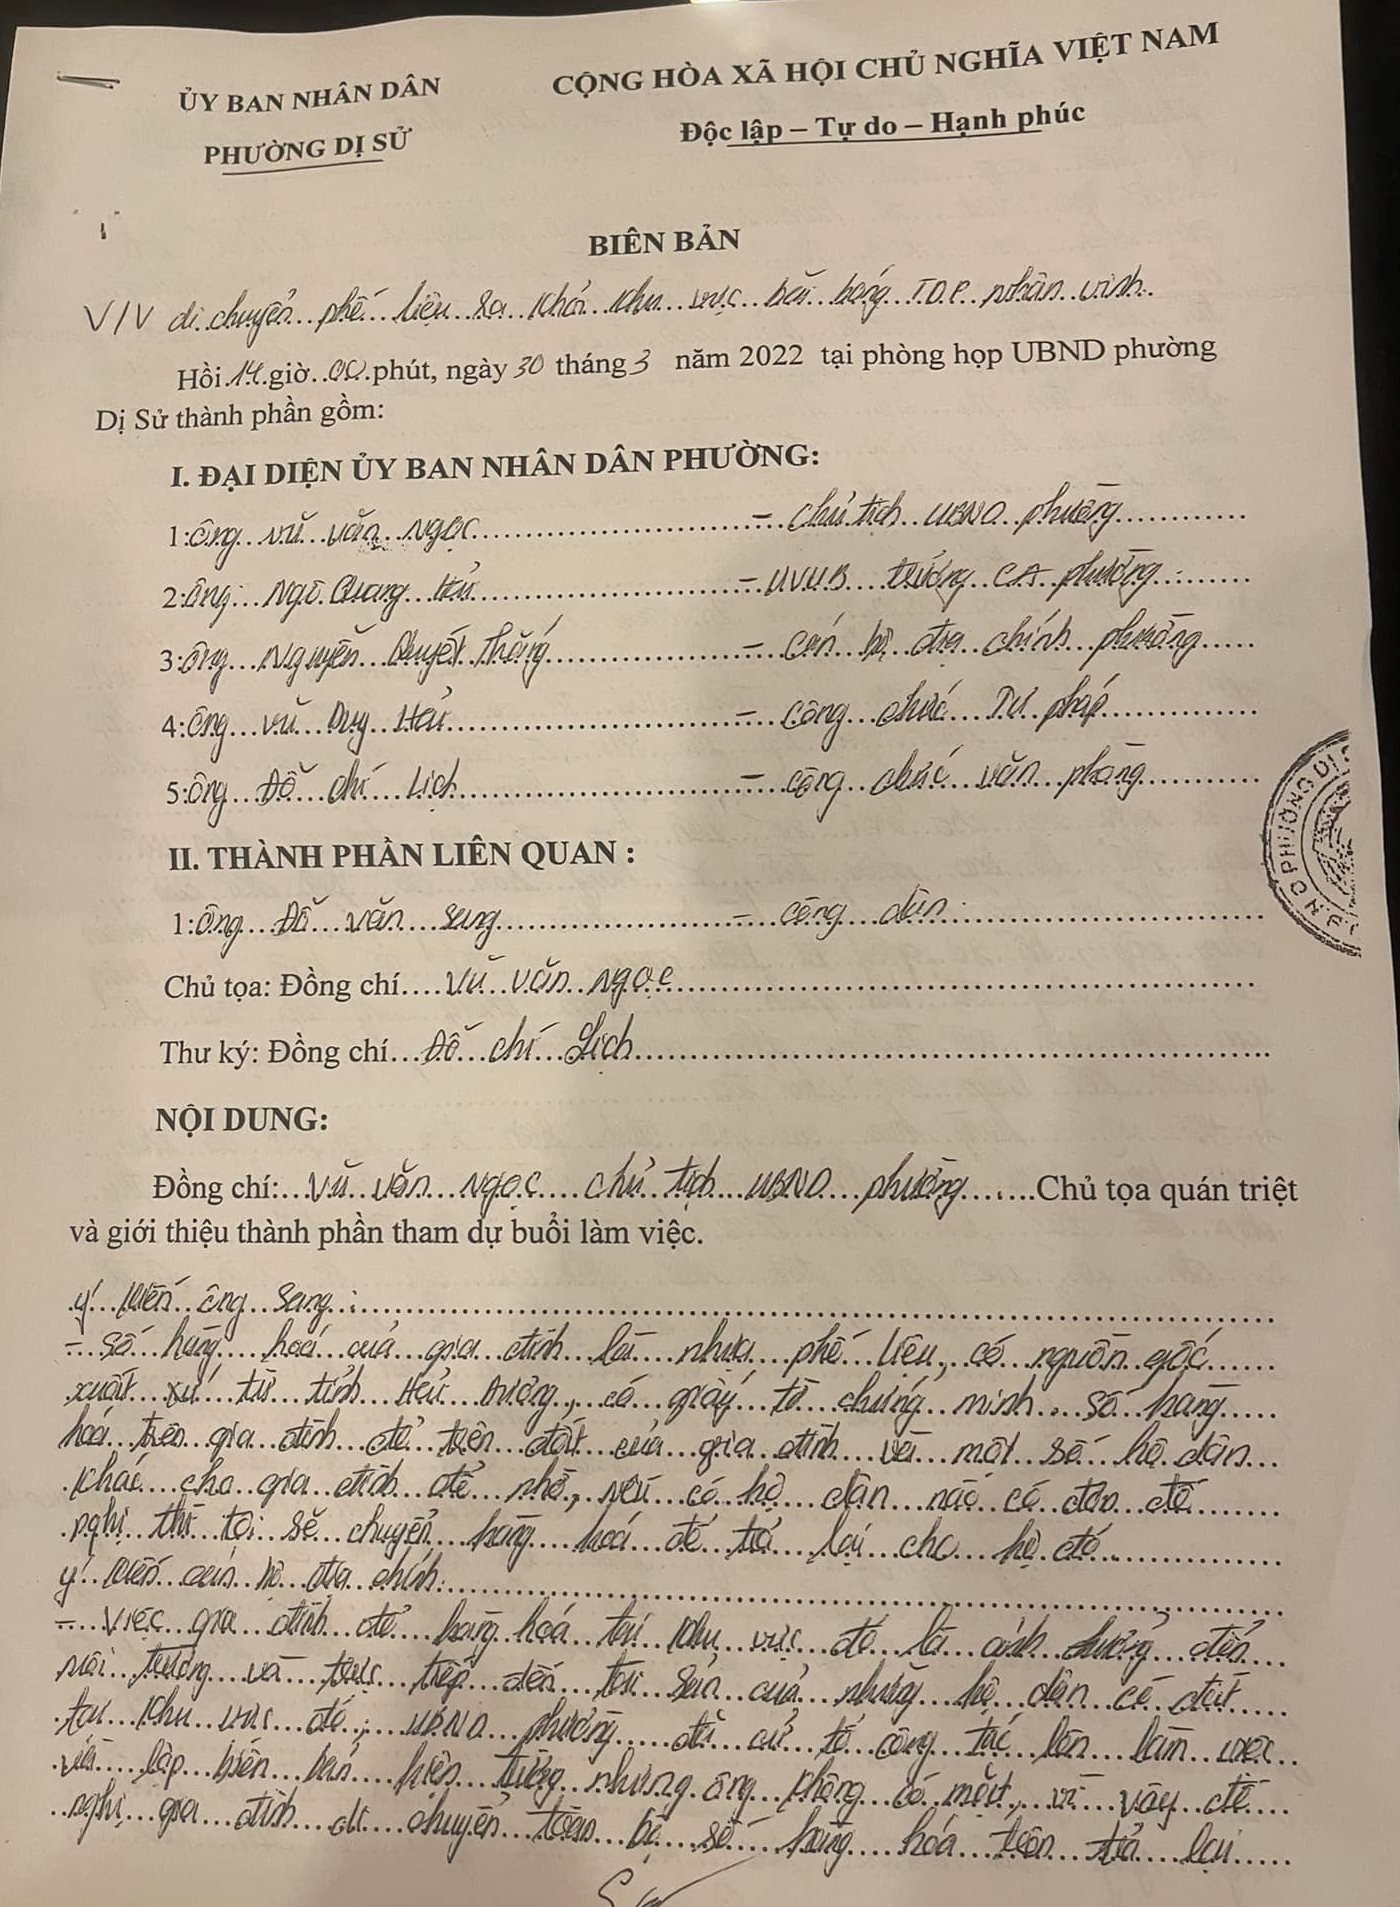 ỦY BAN NHÂN DÂN
PHƯỜNG DỊ SỬ
CỘNG HÒA XÃ HỘI CHỦ NGHĨA VIỆT NAM
Độc lập – Tự do – Hạnh phúc
BIÊN BẢN
V/V di chuyển phế liệu ra khỏi khu vực bãi bóng TDP nhân vinh
Hồi 14 giờ 00 phút, ngày 30 tháng 3 năm 2022 tại phòng họp UBND phường
Dị Sử thành phần gồm:
I. ĐẠI DIỆN ỦY BAN NHÂN DÂN PHƯỜNG:
1: ông vũ văn Ngọc – chủ tịch UBND phường
2: ông Ngô Quang – UVUB trưởng CA phường
3: ông Nguyễn Quyết thắng – cán bộ địa chính phường
4: ông vũ Duy Hải – công chức Tư pháp
5: ông Đỗ chí Lịch – công chức văn phòng
II. THÀNH PHẦN LIÊN QUAN :
1: ông Đỗ văn sang – công dân
Chủ tọa: Đồng chí vũ văn Ngọc
Thư ký: Đồng chí Đỗ chí Lịch
PHƯỜNG DỊ
NỘI DUNG:
Đồng chí: vũ văn Ngọc chủ tịch UBND phường Chủ tọa quán triệt
và giới thiệu thành phần tham dự buổi làm việc.
ý kiến ông sang :
– số hàng hoá của gia đình là nhựa phế liệu, có nguồn gốc
xuất xứ từ tỉnh Hải Dương, có giấy tờ chứng minh số hàng
hoá trên gia đình để trên đất của gia đình và một số hộ dân
khác cho gia đình để nhờ, nếu có hộ dân nào có đơn đề
nghị thì tôi sẽ chuyển hàng hoá để trả lại cho hộ đó
ý kiến cán bộ địa chính:
– việc gia đình để hàng hoá tại khu vực đó là ảnh hưởng đến
môi trường và trực tiếp đến tài sản của những hộ dân có đất
tại khu vực đó, UBND phường đã cử tổ công tác lên làm việc
và lập biên bản hiện trường nhưng ông không có mặt, vì vậy đề
nghị gia đình di chuyển toàn bộ số hàng hóa trên trả lại